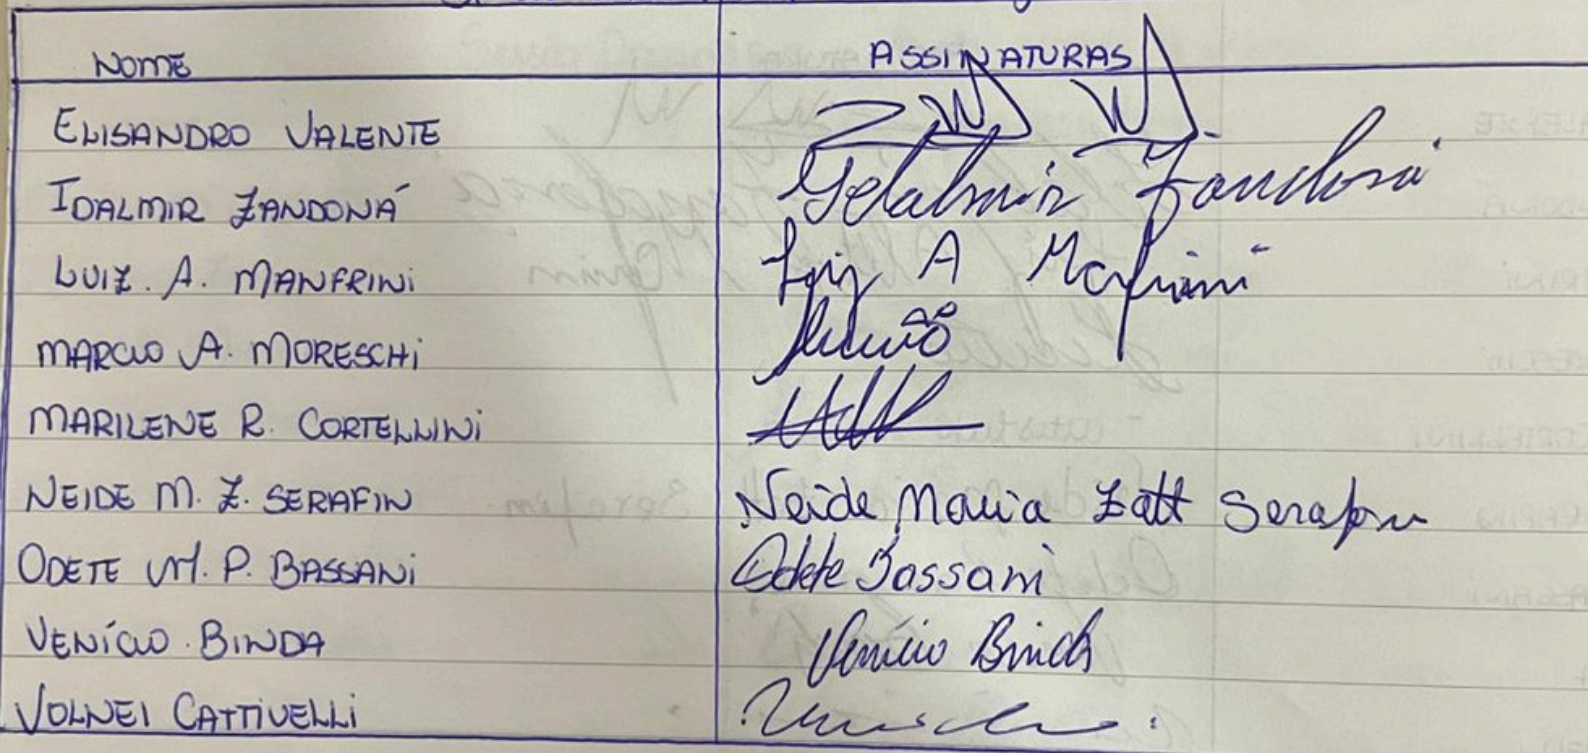 NOME ASSINATURAS
ELISANDRO VALENTE
IDALMIR ZANDONÁ Idalmir Zandoná
LUIZ. A. MANFRINI Luiz A Manfrini
MARCIO A. MORESCHI
MARILENE R. CORTELLINI
NEIDE M. Z. SERAFIN Neide Maria Zatt Serafin
ODETE M. P. BASSANI Odete Bassani
VENÍCIO BINDA Venício Binda
VOLNEI CATTIVELLI